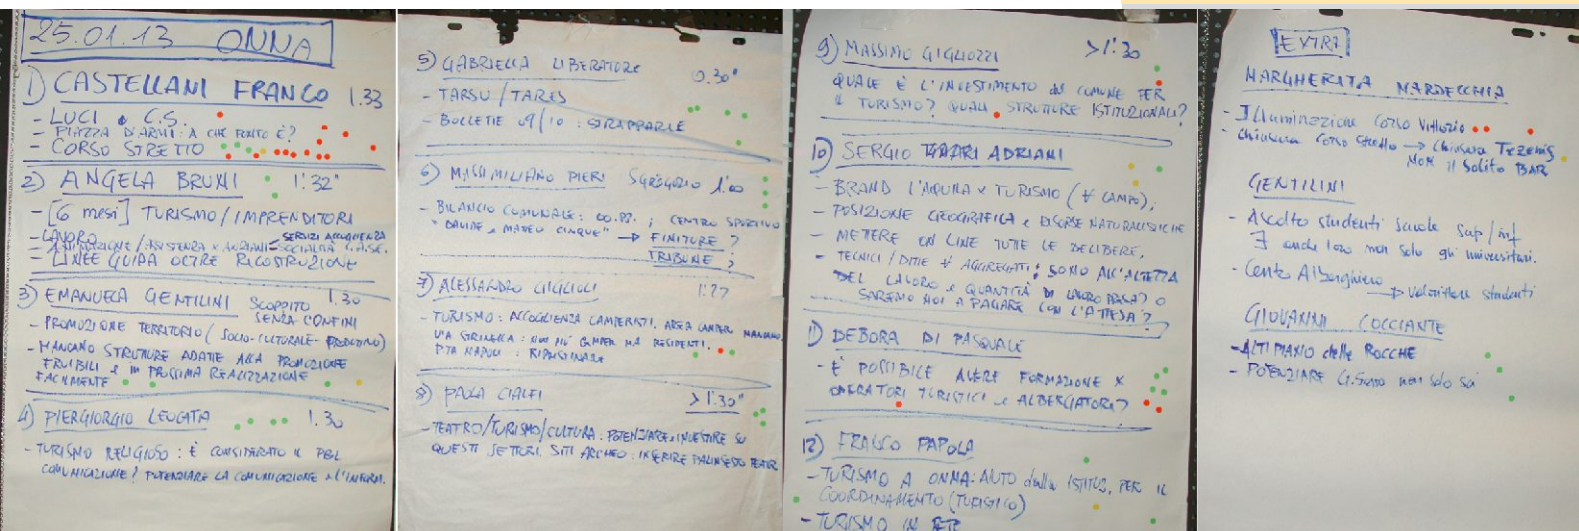 25.01.13 ONNA
1) CASTELLANI FRANCO 1.33
- LUCI e C.S.
- PIAZZA D'ARMI: A CHE PUNTO È?
- CORSO STRETTO
2) ANGELA BRUNI 1:32"
- [6 mesi] TURISMO/IMPRENDITORI
- LAVORO SERVIZI ACCOGLIENZA
- ANIMAZIONE/ASSISTENZA x ANZIANI = SOCIALITÀ C.A.S.E.
- LINEE GUIDA OLTRE RICOSTRUZIONE
3) EMANUELA GENTILINI SCOPPITO 1.30
SENZA CONFINI
- PROMOZIONE TERRITORIO (SOCIO-CULTURALE-PRODUTTIVO)
- MANCANO STRUTTURE ADATTE ALLA PROMOZIONE
FRUIBILI e IN PROSSIMA REALIZZAZIONE
FACILMENTE
4) PIERGIORGIO LEOCATA 1.30
- TURISMO RELIGIOSO: È CONSIDERATO IL PBL
COMUNICAZIONE? POTENZIARE LA COMUNICAZIONE e L'INFORM.
5) GABRIELLA LIBERATORE 0.30"
- TARSU/TARES
- BOLLETTE 09/10: STRAPPARLE
6) MASSIMILIANO PIERI S GREGORIO 1.00
- BILANCIO COMUNALE: OO.PP. ; CENTRO SPORTIVO
"DAVIDE e MATTEO CINQUE" → FINITURE?
TRIBUNE?
7) ALESSANDRO 1:27
- TURISMO: ACCOGLIENZA CAMPERISTI. AREA CAMPER MANCANO
V'A STRINELLA: NON PIÙ CAMPER MA RESIDENTI.
P.TA NAPOLI: RIPRISTINARE
8) PAOLA CIALFI >1'30"
- TEATRO/TURISMO/CULTURA. POTENZIARE e INVESTIRE SU
QUESTI SETTORI. SITI ARCHEO: INSERIRE PALINSESTO TEATR
9) MASSIMO GIGLIOZZI >1'30
QUALE È L'INVESTIMENTO del COMUNE PER
IL TURISMO? QUALI STRUTTURE ISTITUZIONALI?
10) SERGIO ADRIANI
- BRAND L'AQUILA x TURISMO (∀ CAMPO);
- POSIZIONE GEOGRAFICA e RISORSE NATURALISTICHE
- METTERE ON LINE TUTTE LE DELIBERE.
- TECNICI/DITTE ∀ AGGREGATI: SONO ALL'ALTEZZA
DEL LAVORO e QUANTITÀ DI LAVORO PRESA? O
SAREMO NOI A PAGARE CON L'ATTESA?
11) DEBORA DI PASQUALE
- È POSSIBILE AVERE FORMAZIONE x
OPERATORI TURISTICI e ALBERGATORI?
12) FRANCO PAPOLA
- TURISMO A ONNA: AIUTO dalle ISTITUZ. PER IL
COORDINAMENTO (TURISTICO)
- TURISMO IN RETE
EXTRA
MARGHERITA NARDECCHIA
- Illuminazione Corso Vittorio
- Chiusura Corso stretto → Chiusura Tezenis
NON il Solito BAR
GENTILINI
- Ascolto studenti Scuole Sup/inf
∃ anche loro non solo gli universitari.
- Centro Alberghiero
→ valorizzare studenti
GIOVANNI COCCIANTE
- ALTIPIANO delle ROCCHE
- POTENZIARE G. Sasso non solo sci